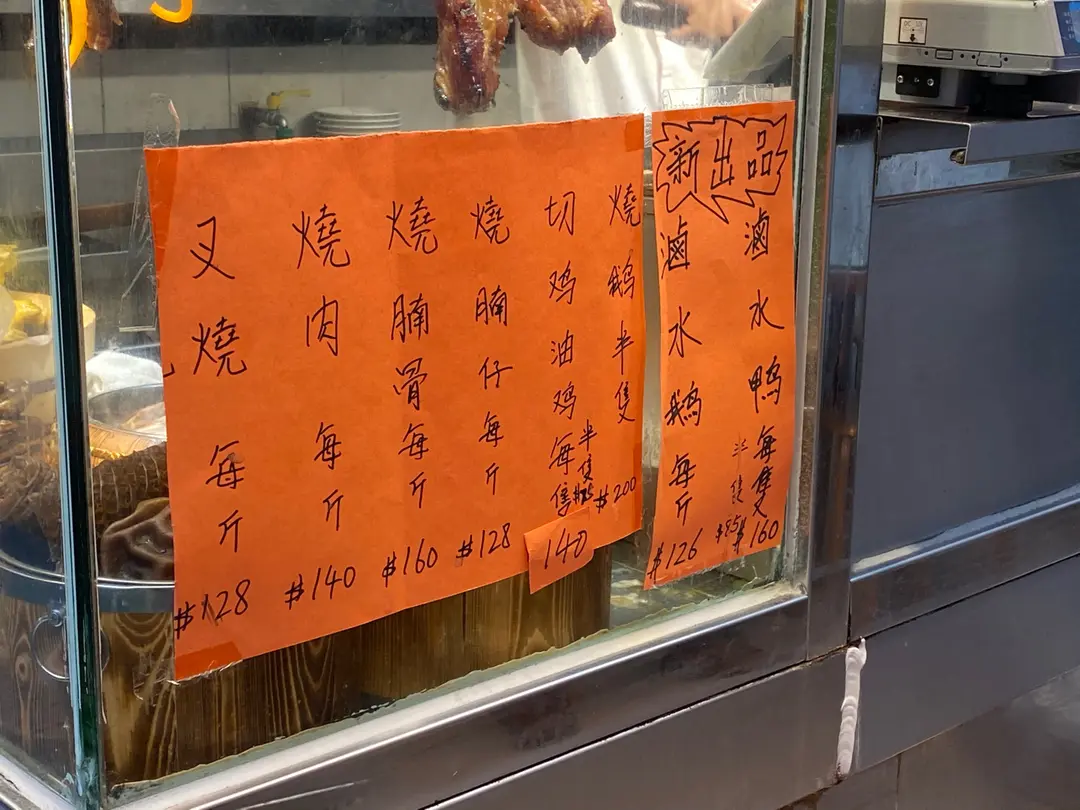 叉燒每斤$128
燒肉每斤$140
燒腩骨每斤$160
燒腩仔每斤$128
切鸡油鸡每隻140
半隻$75
燒鹅半隻$200
新出品
滷水鹅每斤$126
滷水鸭每隻$160
半隻$85